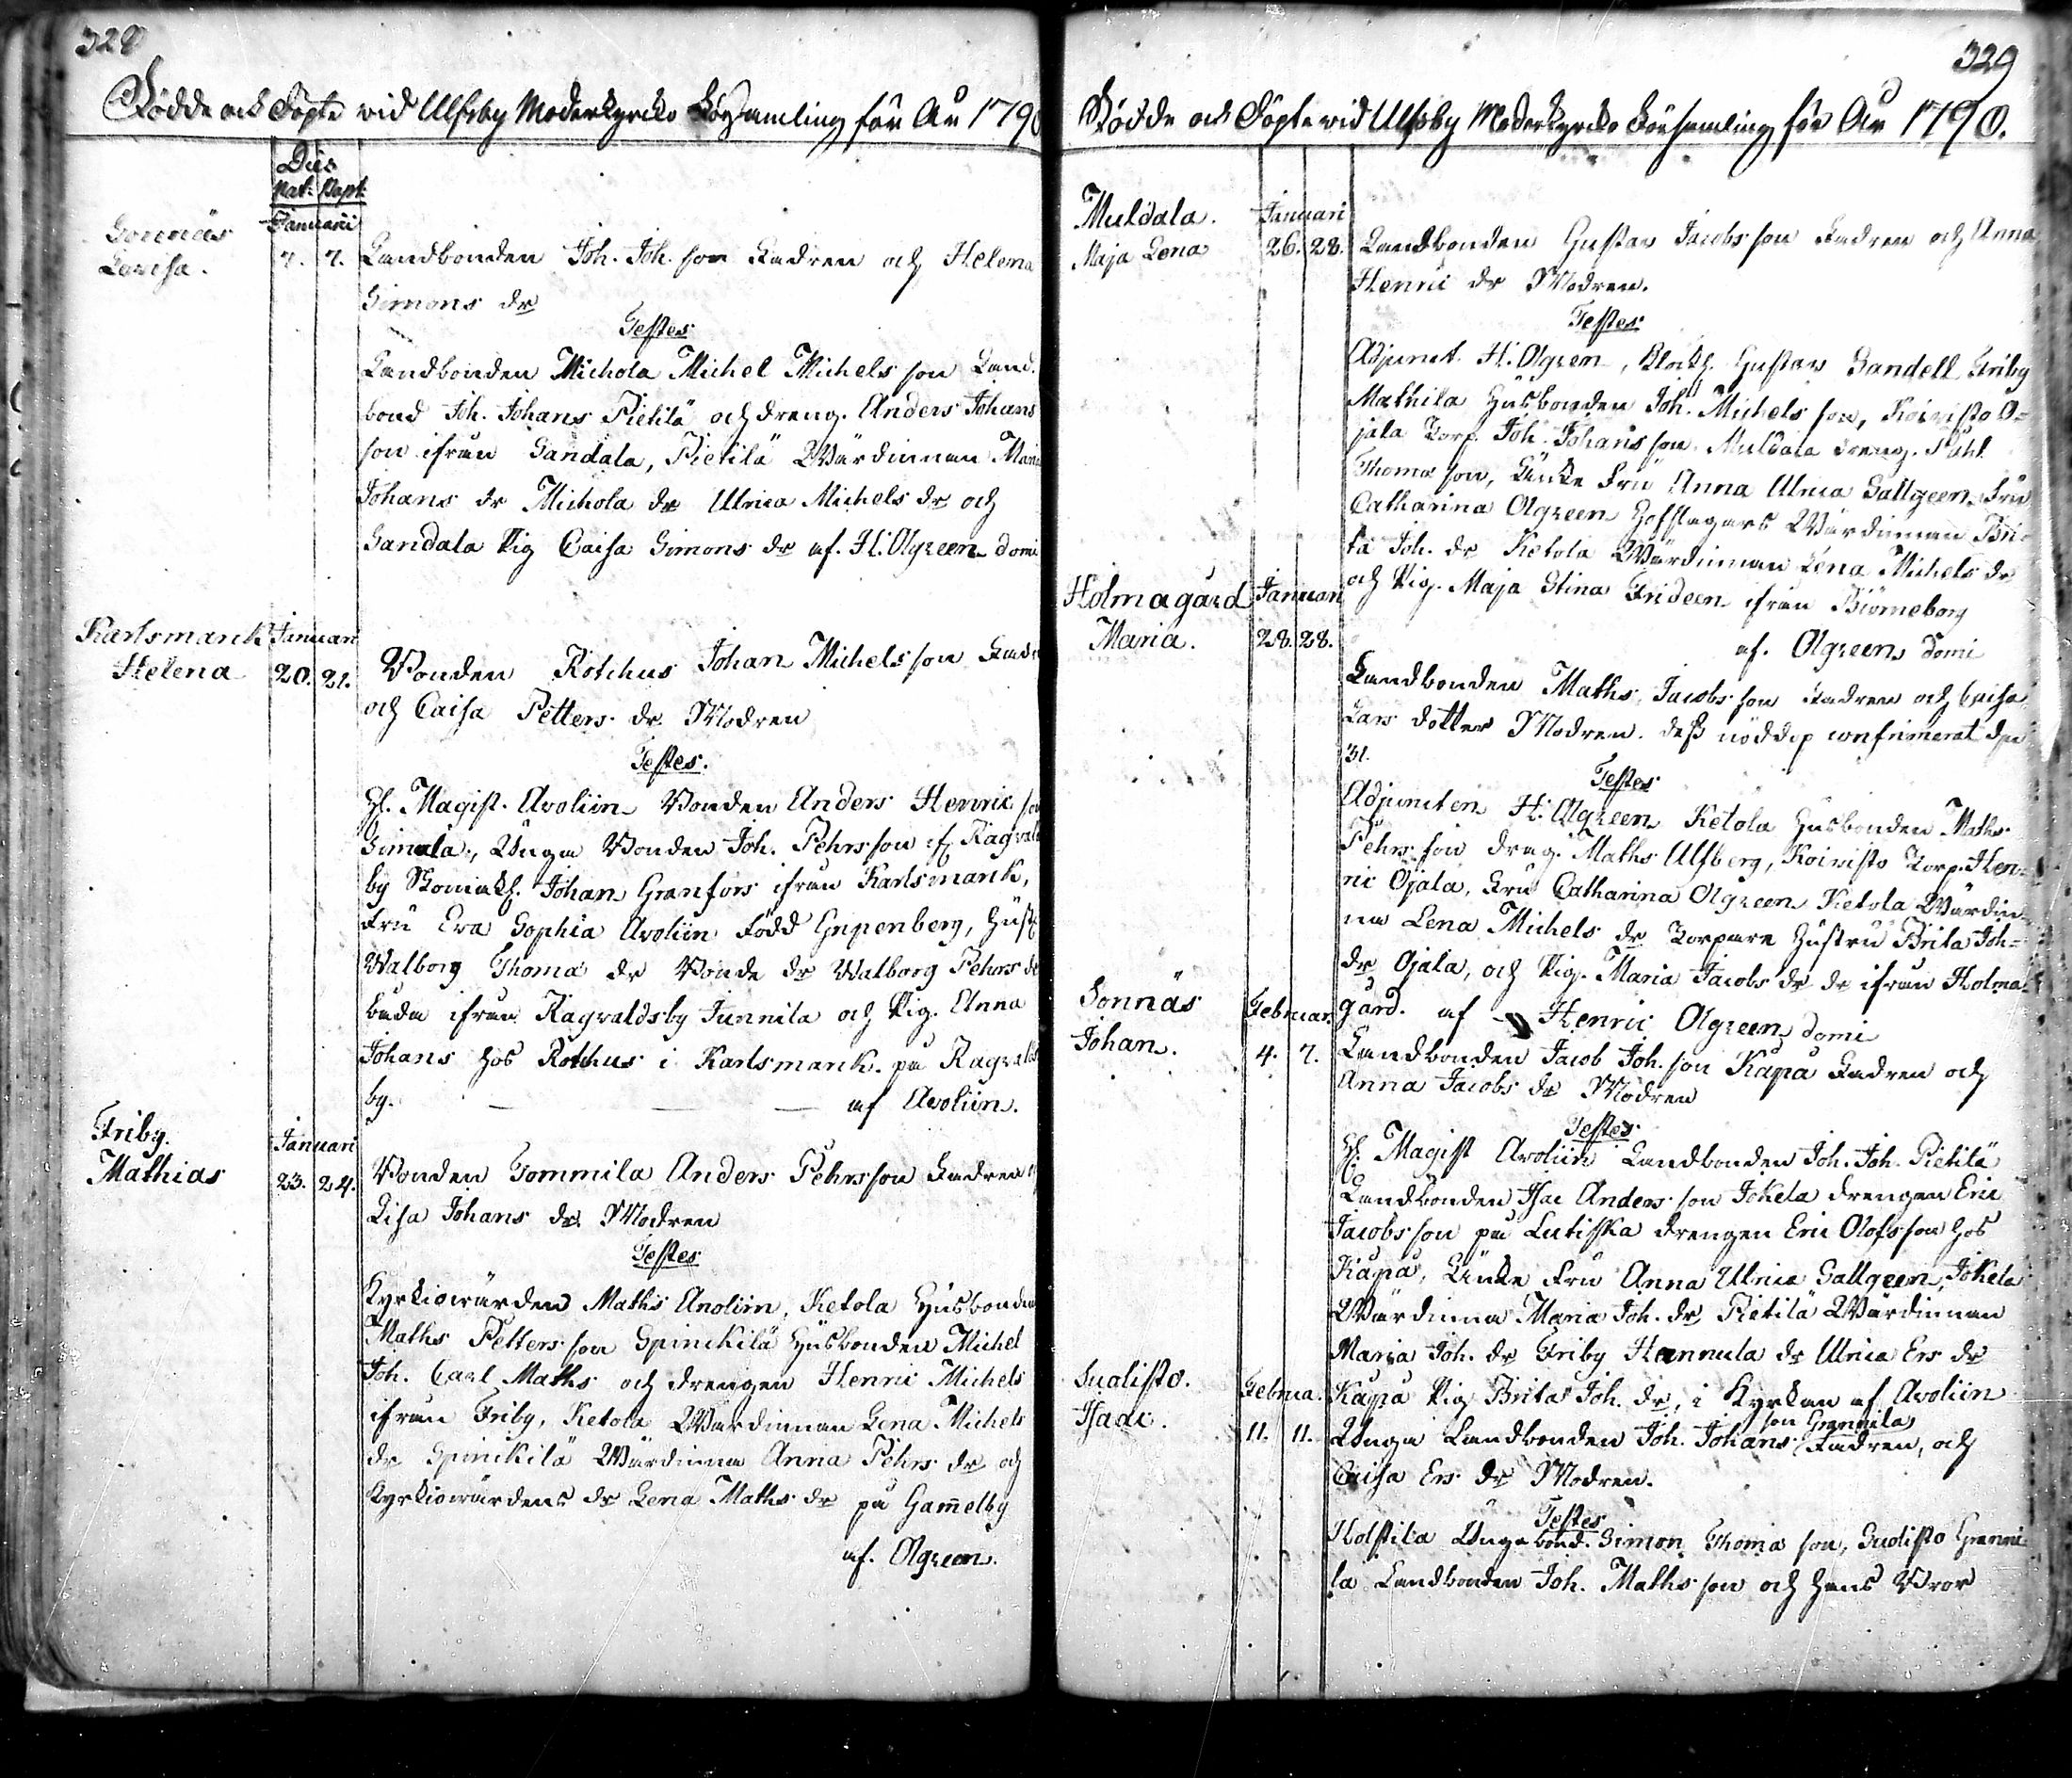 328
Födde och Döpte vid Ulfsby Moderkyrcko Församling för År 1790
Dies
Nat. Bapt.
Januarii
Sonnäs
Lovisa.
7. 7. Landbonden Joh. Joh. son Fadren och Helena
Simons dr
Testes
Landbonden Michola Michel Michels son Land-
bond Joh. Johans Pietilä och dreng. Anders Johans
son ifrån Sandala, Pietilä Wärdinnan Maria
Johans dr Michola dr Ulrica Michels dr och
Sandala Pig Caisa Simons dr af. H. Olgreen domi
Karlsmarck Januari
Helena 20. 21. Bonden Rothus Johan Michels son Fadr
och Caisa Petters dr Modren
Testes.
H. Magist. Avoliin Bonden Anders Henric son
Simula, Unga Bonden Joh. Pehrs son if. Ragvalds
by Johan Granfors ifrån Karlsmarck,
Fru Eva Sophia Avoliin Född Gripenberg, Hust
Walborg Thomæ dr Bonde dr Walborg Pehrs dr
båda ifrån Ragvaldsby Junnila och Pig. Anna
Johans hos Rothus i Karlsmarck. på Ragvalds
by. — — — af Avoliin.
Friby. Januari
Mathias 23. 24. Bonden Tommila Anders Pehrsson Fadren och
Lisa Johans dr. Modren
Testes
Kyrkiowärden Maths Anoliin, Ketola Husbonden
Maths Petters son Spinckilä Husbonden Michel
Joh. Carl Maths och drengen Henric Michels
ifrån Friby, Ketola Wärdinnan Lena Michels
dr Spinckilä Wärdinna Anna Pehrs dr och
Kyrkiowärdens dr Lena Maths dr på Gam̄elby
af. Olgreen.
329
Födde och Döpte vid Ulfsby Moderkyrcko Församling för År 1790.
Muldala. Januari
Maja Lena 26. 28. Landbonden Gustav Jacobs son Fadren och Anna
Henric dr Modren.
Testes
Adjunct. H. Olgreen, Klock. Gustav Sandell Friby
Mathila Husbonden Joh. Michels son, Koivisto O-
jala Torp. Joh. Johans son Muldala dreng. Påhl
Thomæ son, Enke Fru Anna Ulrica Sallgreen Fru
Catharina Olgreen Hofslagars Wärdinnan Bri-
ta Joh. dr Ketola Wärdinnan Lena Michels dr
och Pig. Maja Stina Frideen ifrån Biörneborg
af. Olgreen domi
Holmagård Januari
Maria. 28. 28.
Landbonden Maths Jacobs son Fadren och Caisa
Lars dotter Modren. dess nöddop confirmerat den
31.
Testes
Adjuncten H. Olgreen Ketola Husbonden Maths
Pehrs son dreng. Maths Ulfberg, Koivisto Torp. Hen-
ric Ojala, Fru Catharina Olgreen Ketola Wärdin-
na Lena Michels dr Torpare Hustru Brita Joh-
dr Ojala, och Pig. Maria Jacobs dr dr ifrån Holma-
gård. af Henric Olgreen domi
Sonnäs Februar.
Johan. 4. 7. Landbonden Jacob Joh. son Kapa Fadren och
Anna Jacobs dr Modren
Testes
H. Magist Avoliin Landbonden Joh. Joh. Pietilä
Landbonden Isac Anders son Jokela drengen Eric
Jacobs son på Lutiska drengen Eric Olofs son hos
Kapa, Enke Fru Anna Ulrica Sallgreen, Jokela
Wärdinna Maria Joh. dr Pietilä Wärdinnan
Maria Joh. dr Friby Hannula dr Ulrica Ers dr
Kapa Pig Brita Joh. dr, i Kyrkan af Avoliin
Sualisto. Februa.
Isaac. 11. 11. Unga Landbonden Joh. Johans son Grannila Fadren, och
Caisa Ers dr Modren.
Testes
Holstila Unga bond. Simon Thomæ son, Sualisto Granni-
la Landbonden Joh. Maths son och hans Bror